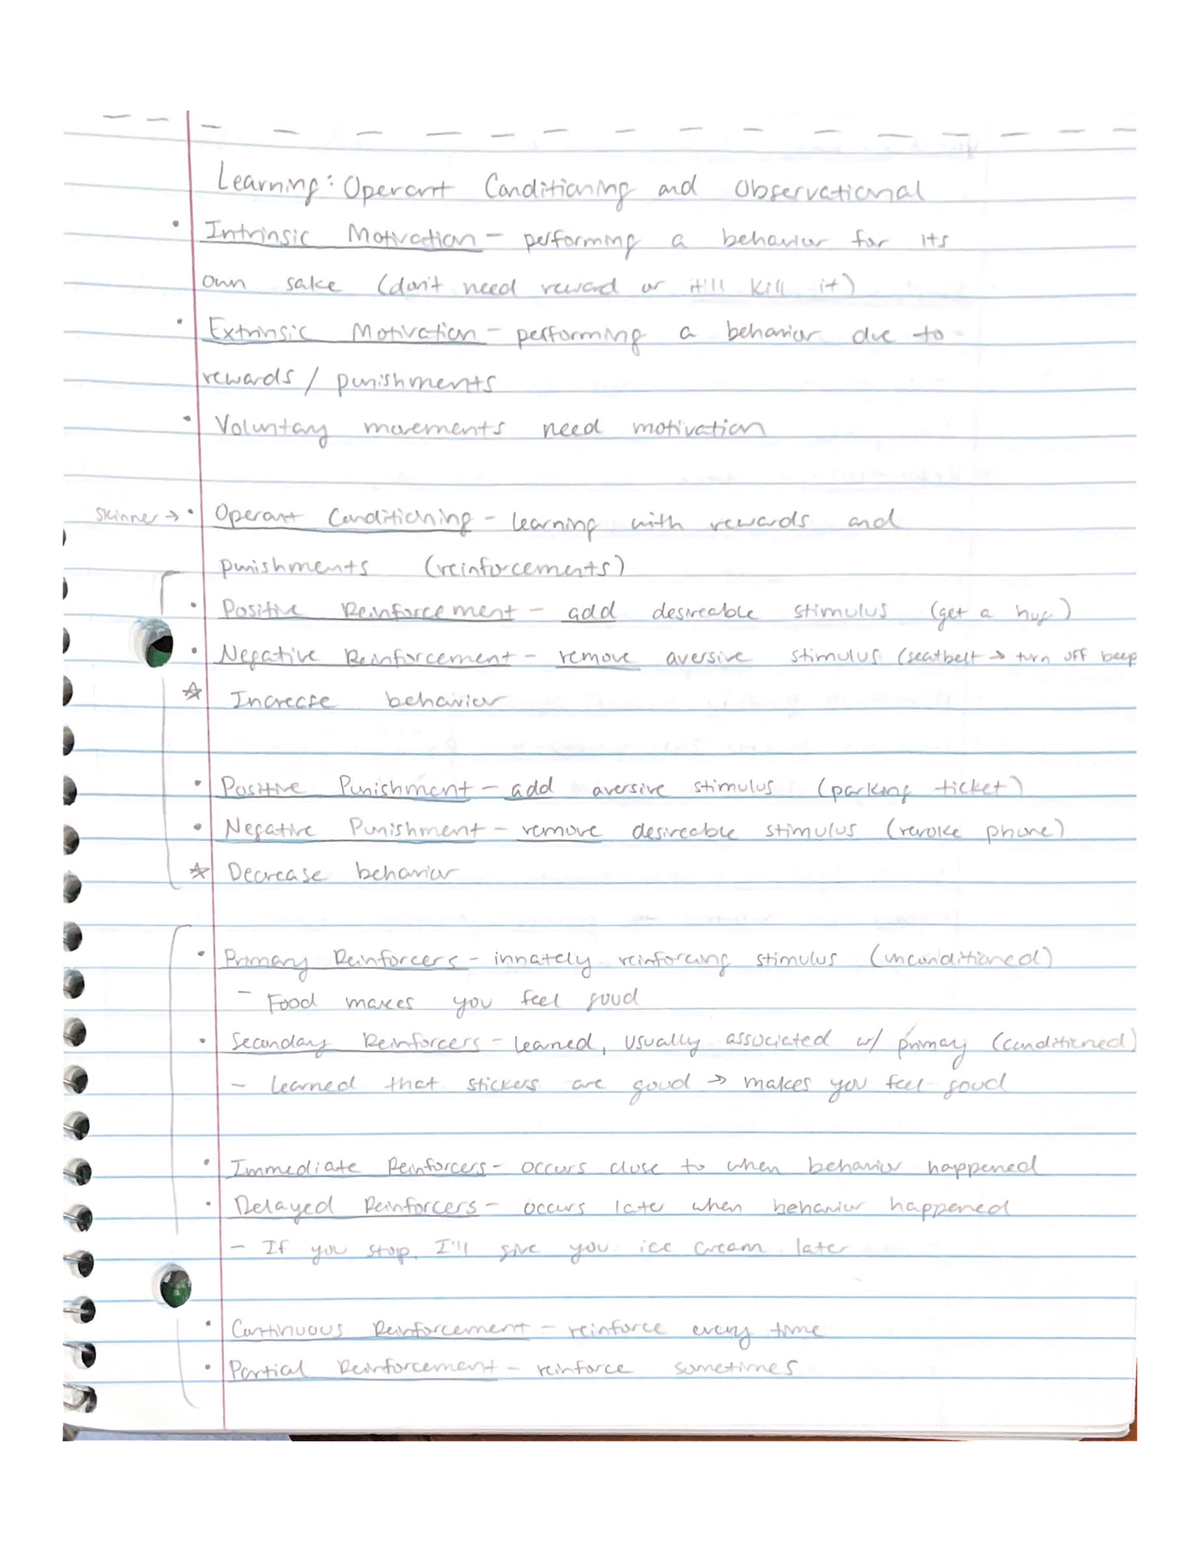 Learning: Operant Conditioning and Observational
• Intrinsic Motivation - performing a behavior for its
own sake (don't need reward or it'll kill it)
• Extrinsic Motivation - performing a behavior due to
rewards / punishments
• Voluntary movements need motivation
Skinner → • Operant Conditioning - learning with rewards and
punishments (reinforcements)
• Positive Reinforcement - add desireable stimulus (get a hug)
• Negative Reinforcement - remove aversive stimulus (seatbelt → turn off beep
☆ Increase behavior
• Positive Punishment - add aversive stimulus (parking ticket)
• Negative Punishment - remove desireable stimulus (revoke phone)
☆ Decrease behavior
• Primary Reinforcers - innately reinforcing stimulus (unconditioned)
- Food makes you feel good
• Secondary Reinforcers - learned, usually associated w/ primary (conditioned)
- learned that stickers are good → makes you feel good
• Immediate Reinforcers - occurs close to when behavior happened
• Delayed Reinforcers - occurs late when behavior happened
- If you stop, I'll give you ice cream later
• Continuous Reinforcement - reinforce every time
• Partial Reinforcement - reinforce sometimes